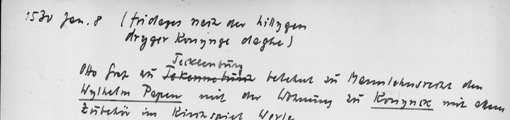 1530 Jan. 8 (fridages nach der hilligen
dryger konynge daghe)
Tecklenburg
Otto Graf zu Tekenneburg belehnt zu Mannlehnsrecht den
Wylhelm Papen mit der Wohnung zu Konynck mit allem
Zubehör im Kirchspiel Werle